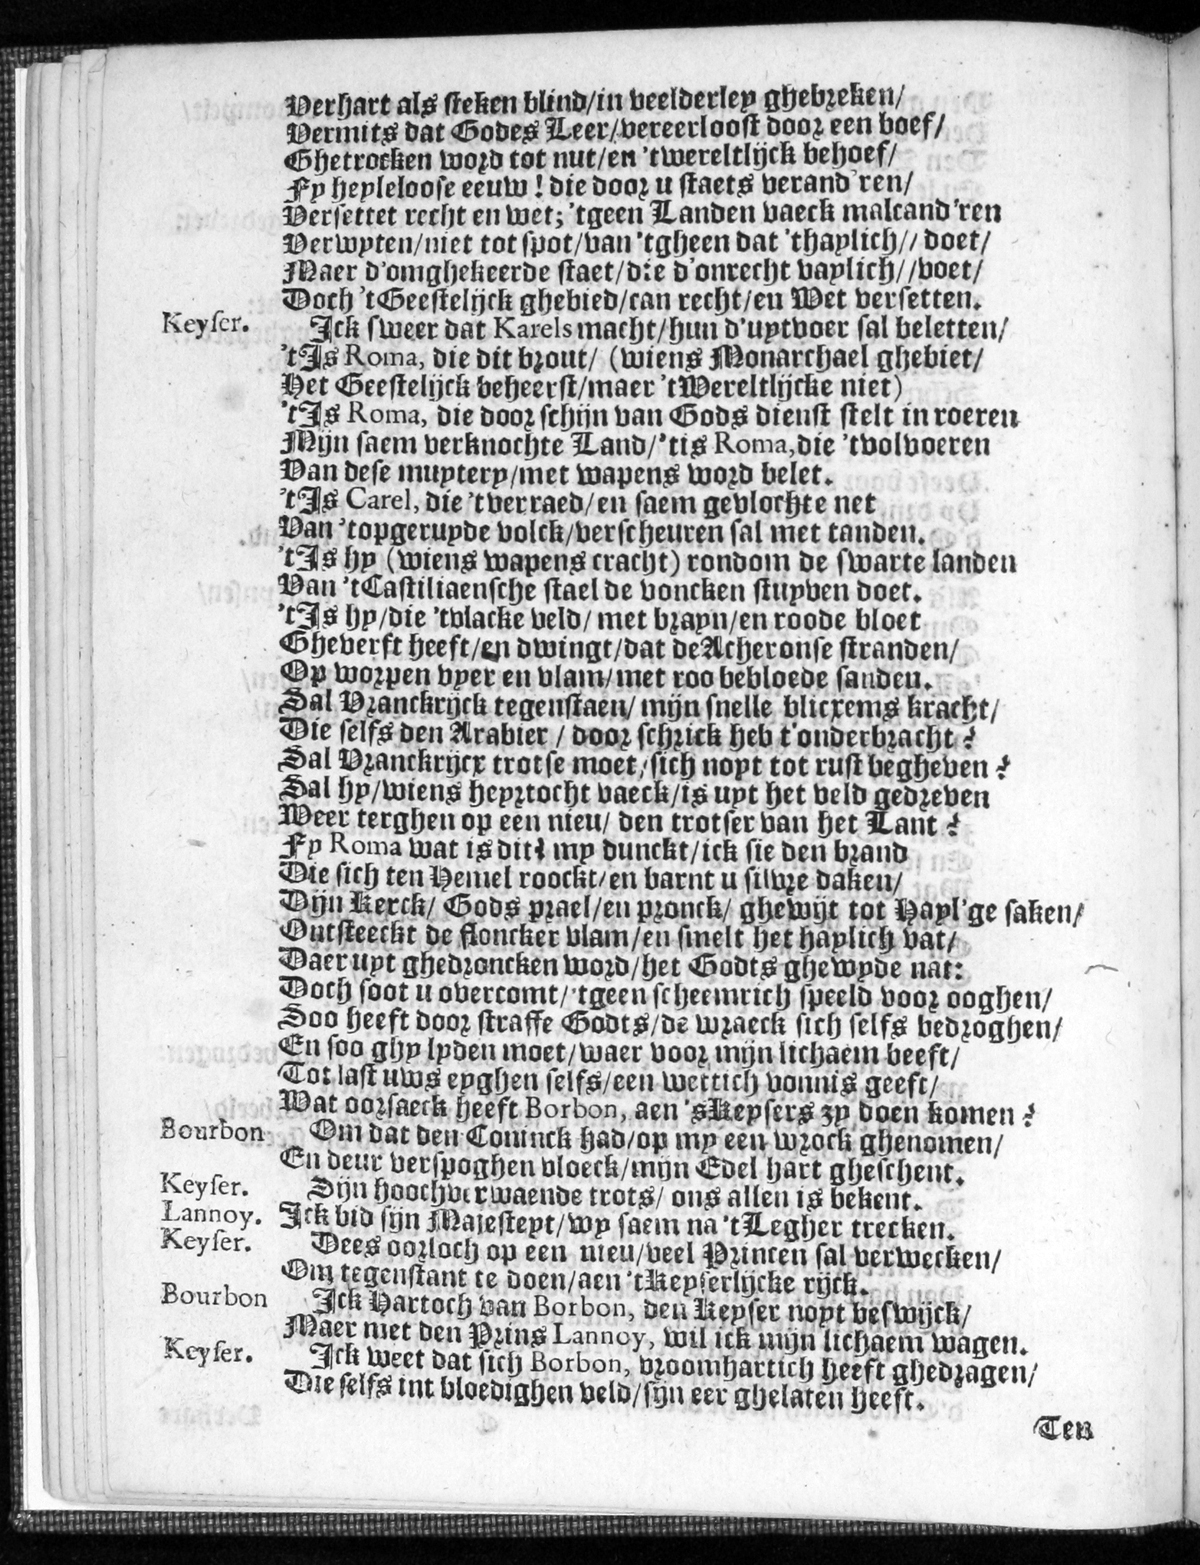 Verhart als steken blind/in veelderley ghebreken/
Vermits dat Godes Leer/vereerloost door een boef/
Ghetrocken word tot nut/en 'twereltlijck behoef/
Fy heyleloose eeuw! die door u staets verand'ren/
Versettet recht en wet; 'tgeen Landen vaeck malcand'ren
Verwyten/niet tot spot/van 'tgheen dat 'thaylich// doet/
Maer d'omghekeerde staet/die d'onrecht vaylich//voet/
Doch 't Geestelijck ghebied/can recht/en Wet versetten.
Keyser. Ick sweer dat Karels macht/hun d'uytvoer sal beletten/
't Is Roma, die dit brout/ (wiens Monarchael ghebiet/
Het Geestelijck beheerst/maer 't Wereltlijcke niet)
't Is Roma, die door schijn van Gods dienst stelt in roeren
Mijn saem verknochte Land/'tis Roma, die 'tvolvoeren
Van dese muytery/met wapens word belet.
't Is Carel, die 't verraed/en saem gevlochte net
Van 'topgeruyde volck/verscheuren sal met tanden.
't Is hy (wiens wapens cracht) rondom de swarte landen
Van 't Castiliaensche stael de voncken stuyven doet.
't Is hy/die 'tvlacke veld/ met brayn/en roode bloet
Gheverft heeft/en dwingt/dat de Acheronse stranden/
Op worpen vyer en vlam/met roo bebloede sanden.
Sal Vranckrijck tegenstaen/ mijn snelle blicxems kracht/
Die selfs den Arabier / door schrick heb t'onderbracht?
Sal Vranckrijcx trotse moet/sich noyt tot rust begheven?
Sal hy/wiens heyrtocht vaeck/is uyt het veld gedreven
Weer terghen op een nieu/ den trotser van het Lant?
Fy Roma wat is dit? my dunckt/ick sie den brand
Die sich ten Hemel roockt/en barnt u silvre daken/
Dijn Kerck/ Gods prael/en pronck/ ghewijt tot Hayl'ge saken/
Ontsteeckt de floncker vlam/en smelt het haylich vat/
Daer uyt ghedroncken word/het Godts ghewyde nat:
Doch soot u overcomt/'tgeen scheemrich speeld voor ooghen/
Soo heeft door straffe Godts/de wraeck sich selfs bedroghen/
En soo ghy lyden moet/waer voor mijn lichaem beeft/
Tot last uws eyghen selfs/een wettich vonnis geeft/
Wat oorsaeck heeft Borbon, aen 's Keysers zy doen komen?
Bourbon Om dat den Coninck had/op my een wrock ghenomen/
En deur verspoghen vloeck/mijn Edel hart gheschent.
Keyser. Sijn hoochverwaende trots/ ons allen is bekent.
Lannoy. Ick bid sijn Majesteyt/wy saem na 't Legher trecken.
Keyser. Dees oorloch op een nieu/veel Princen sal verwecken/
Om tegenstant te doen/aen 't Keyserlijcke rijck.
Bourbon Ick Hartoch van Borbon, den Keyser noyt beswijck/
Maer met den Prins Lannoy, wil ick mijn lichaem wagen.
Keyser. Ick weet dat sich Borbon, vroomhartich heeft ghedragen/
Die selfs int bloedighen veld/sijn eer ghelaten heeft.
Ten